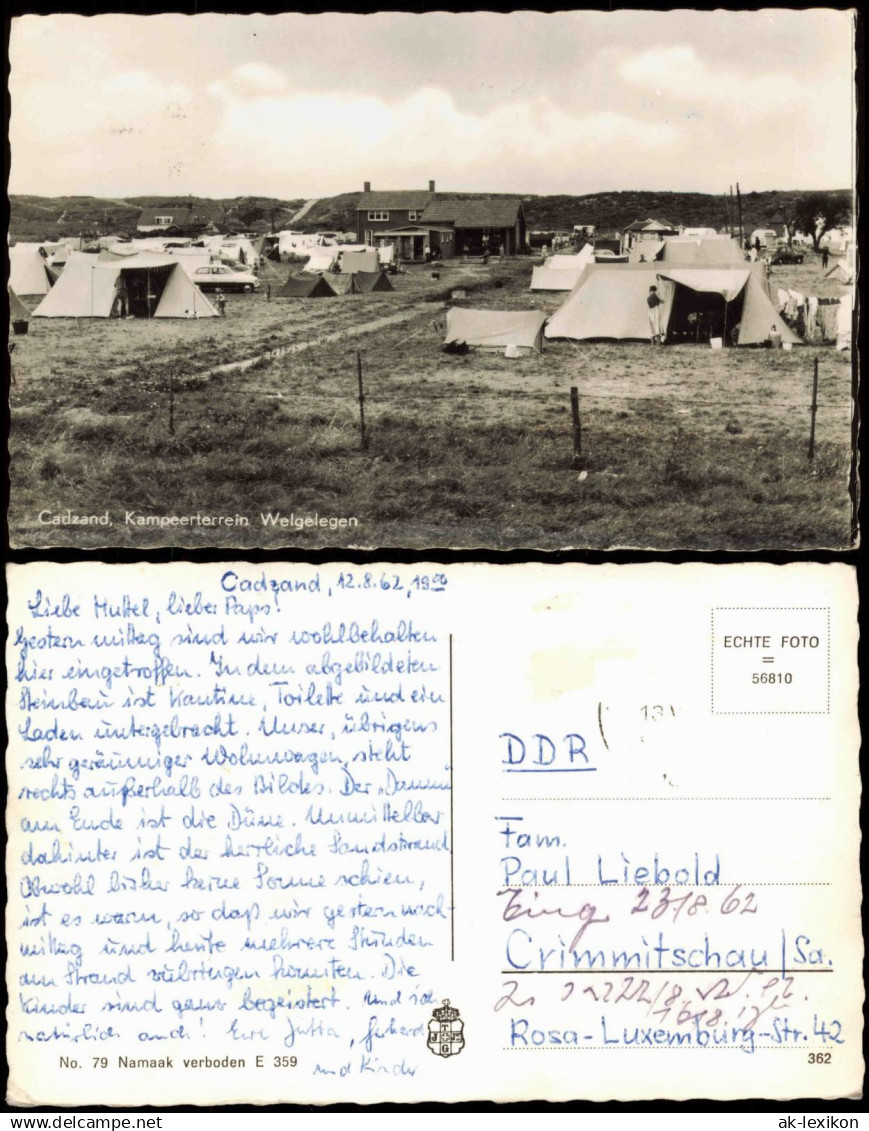 Cadzand, Kampeerterrein Welgelegen
Cadzand, 12.8.62, 19⁰⁰
Liebe Muttel, lieber Paps!
Gestern mittag sind wir wohlbehalten
hier eingetroffen. In dem abgebildeten
Steinbau ist Kantine, Toilette und ein
Laden untergebracht. Unser, übrigens
sehr geräumiger Wohnwagen, steht
rechts außerhalb des Bildes. Der „Damm“
am Ende ist die Düne. Unmittelbar
dahinter ist der herrliche Sandstrand.
Obwohl bisher keine Sonne schien,
ist es warm, so daß wir gestern nach-
mittag und heute mehrere Stunden
am Strand verbringen konnten. Die
Kinder sind ganz begeistert. und ich
natürlich auch! Eure Jutta, Gerhard
und Kinder
No. 79 Namaak verboden E 359
T
J S
G
ECHTE FOTO
=
56810
DDR
Fam.
Paul Liebold
Eing 23/8.62
Crimmitschau/Sa.
Rosa-Luxemburg-Str. 42
362
delcampe.net
ak-lexikon